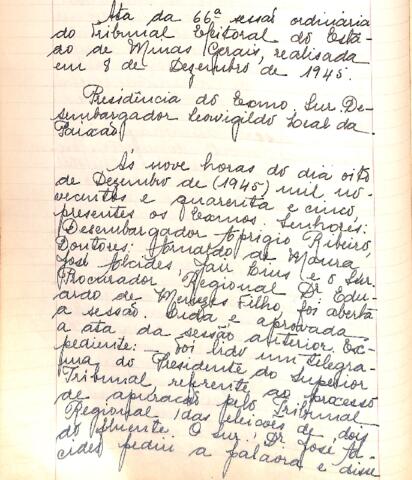 Ata da 66ª sessão ordinaria
do Tribunal Eleitoral do Esta-
do de Minas Gerais, realisada
em 8 de Dezembro de 1945.
Presidência do Exmo. Snr. De-
sembargador Leovigildo Leal da
Paixão
Ás nove horas do dia oito
de Dezembro de (1945) mil no-
vecentos e quarenta e cinco,
presentes os Exmos. Senhores:
Desembargador Aprigio Ribeiro,
Doutores: Arnardo de Moura
José Alcides, Jair Lins e o Snr.
Procurador Regional Dr Edu-
ardo de Menezes Filho, foi aberta
a sessão. Lida e aprovada
a ata da sessão anterior. Ex-
pediente: - Foi lido um telegra-
ma do Presidente do Superior
Tribunal referente ao processo
de apuração pelo Tribunal
Regional, das eleicoes de dois
do fluente O Snr. Dr José Al-
cides pediu a palavra e disse